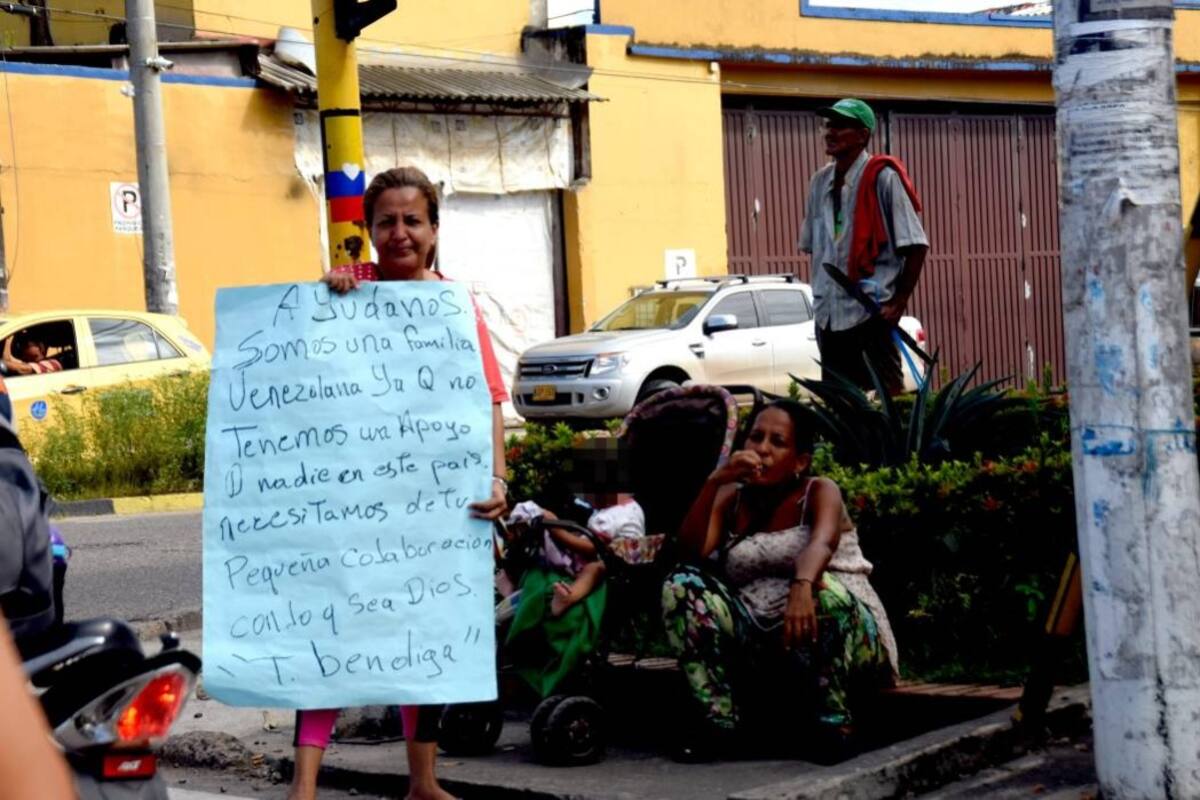 AYUdANOS.
Somos una familia
Venezolana Ya Q no
Tenemos un Apoyo
D nadie en este país.
necesitamos de tu
Pequeña colaboracion
con lo q sea Dios.
"T. bendiga"
P
P